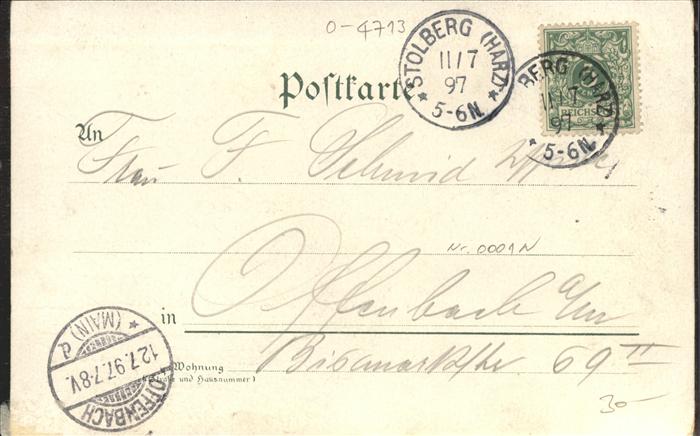 0-4713
STOLBERG (HARZ)
11/7
97
5-6N.
BERG (HARZ)
11/7
97
5-6N.
REICHSP
Postkarte
An
Frau F. Schmid
Nr. 0001N
Offenbach a/m
in
Wohnung
(Straße und Hausnummer)
Bismarckstr. 69 II
OFFENBACH
12.7.97.7-8V.
(MAIN)
30-